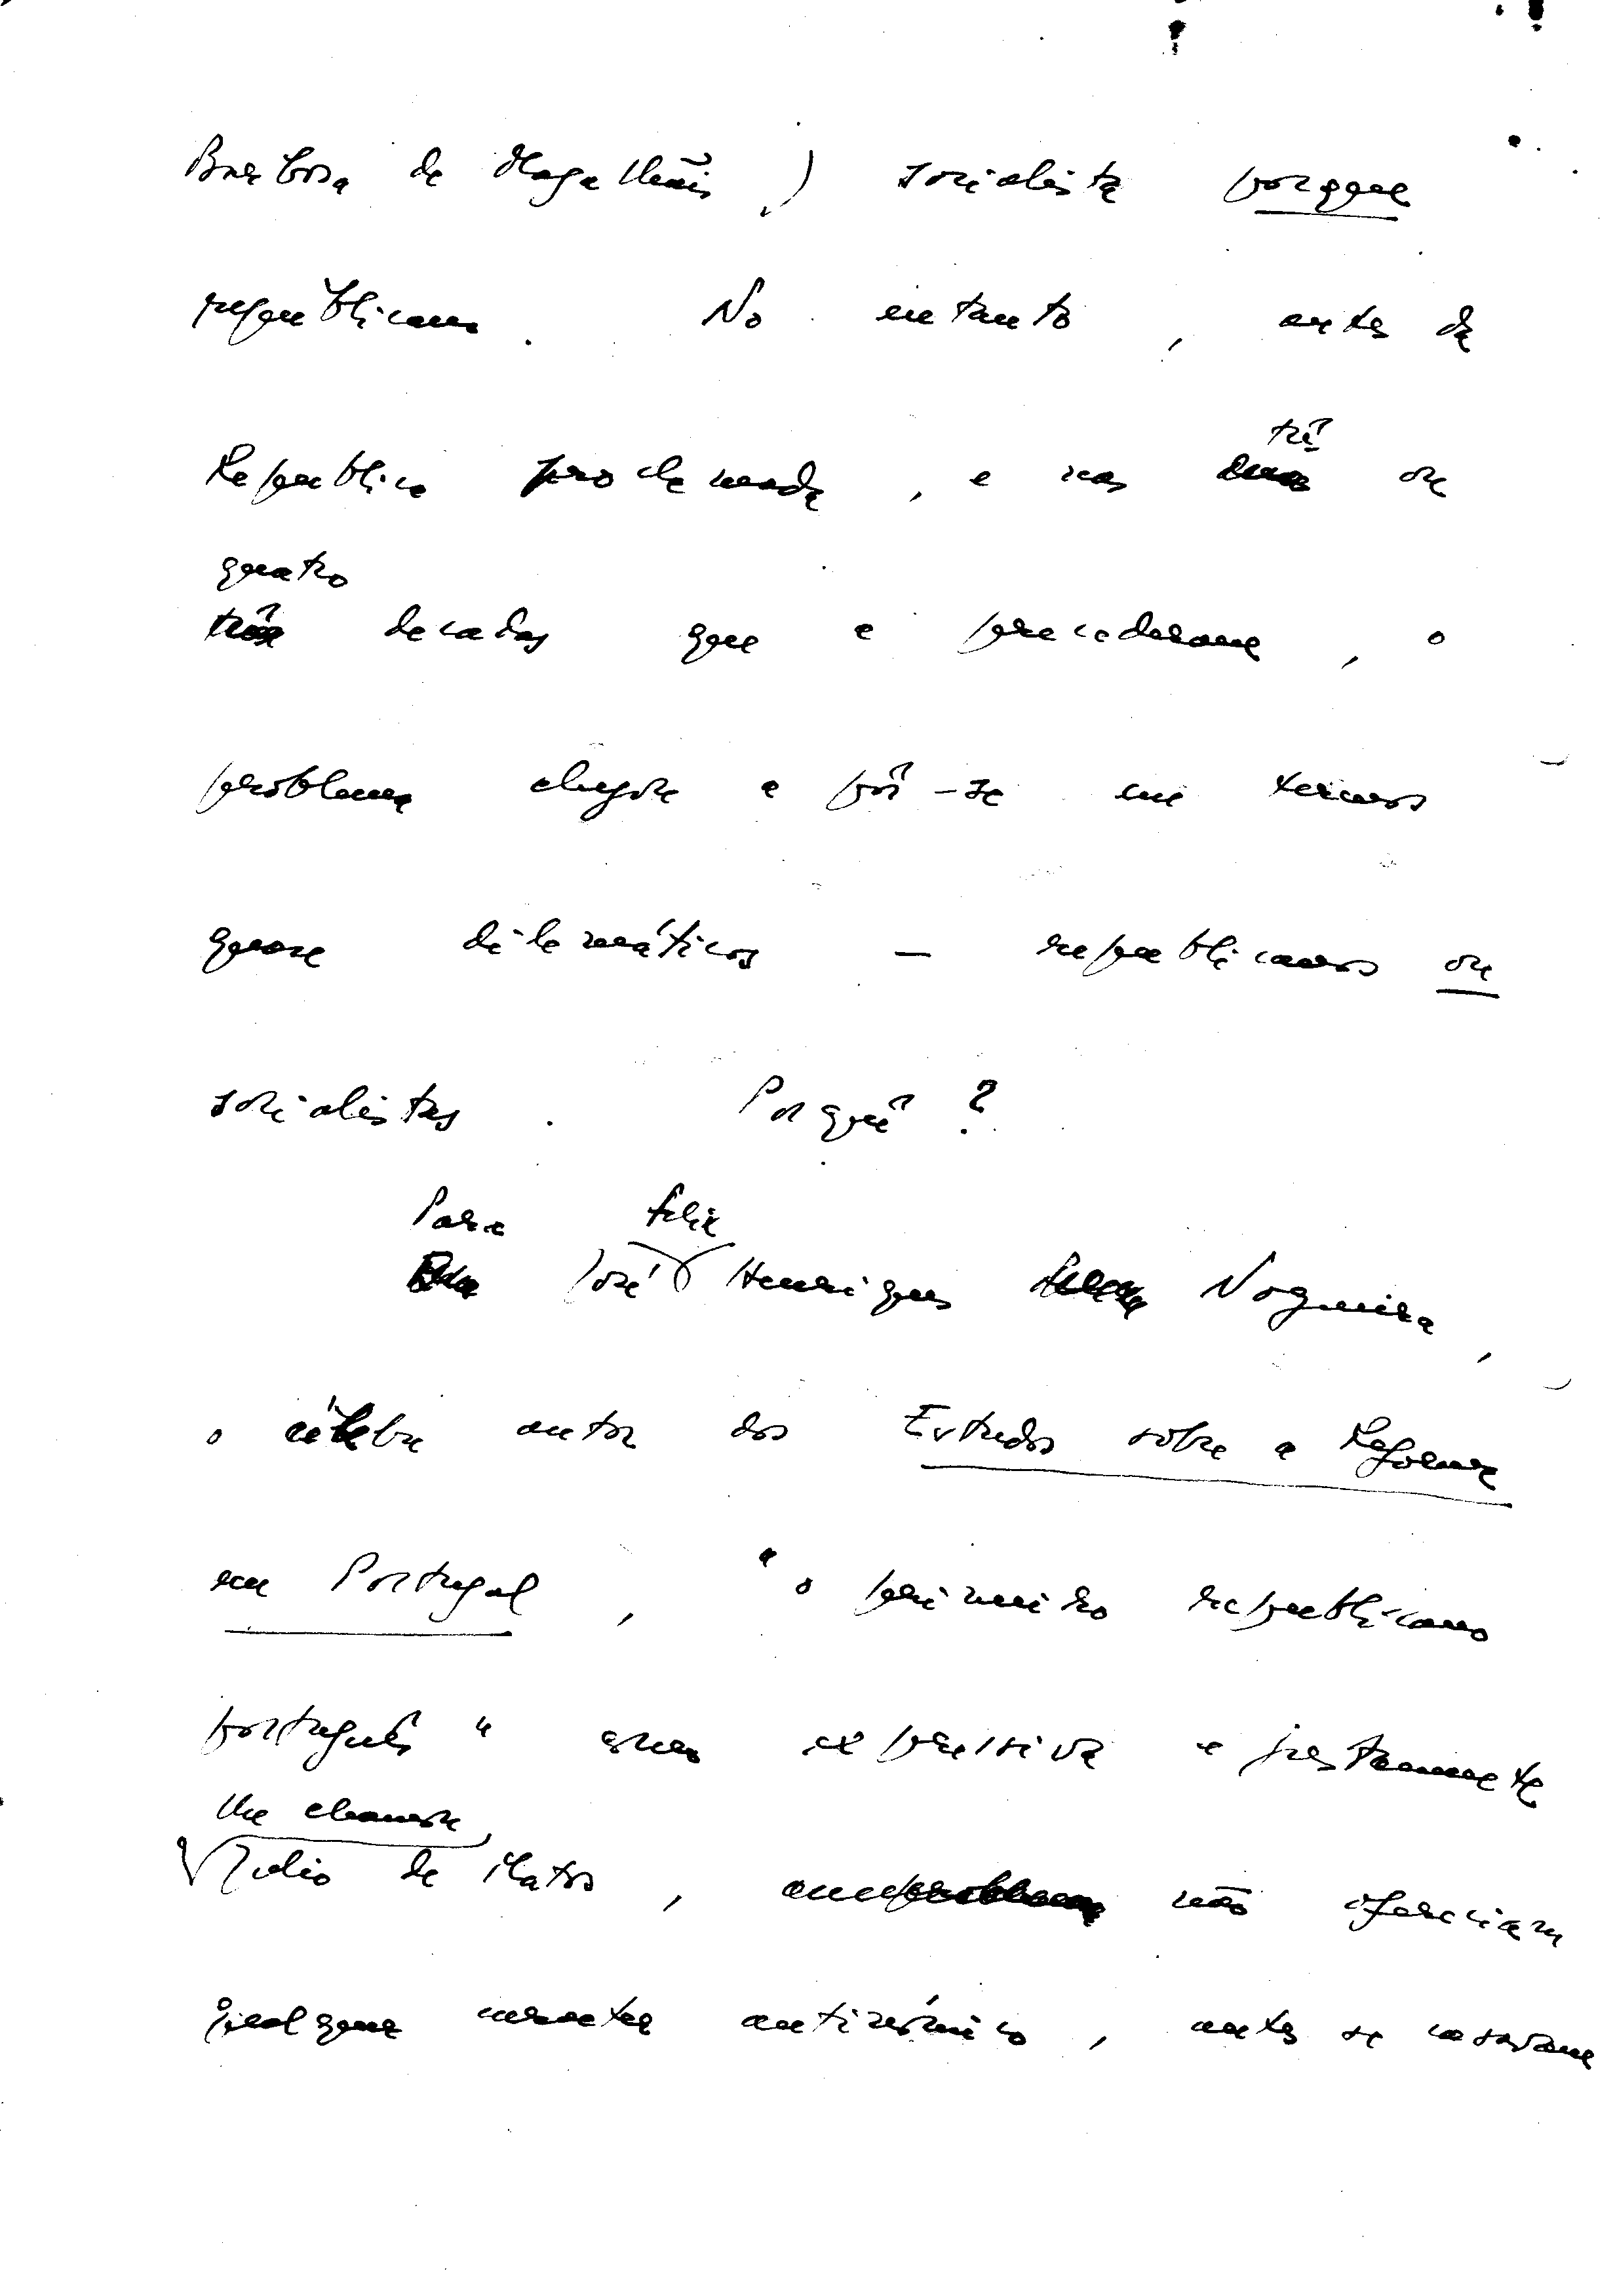 Barbosa de Magalhães,) socialista porque
republicano. No entanto, antes da
três
Republica proclamada, e nas duas ou
quatro
três decadas que a precederam, o
problema chegou a pôr-se em termos
quase dilemáticos – republicanos ou
socialistas. Porquê?
Para Felix
José Henriques Nogueira,
o célebre autor dos Estudos sobre a Reforma
em Portugal, "o primeiro republicano
português" como expressiva e justamente
lhe chamou
Julio de Matos, não ofereciam
qualquer caracter antinómico, antes se casavam